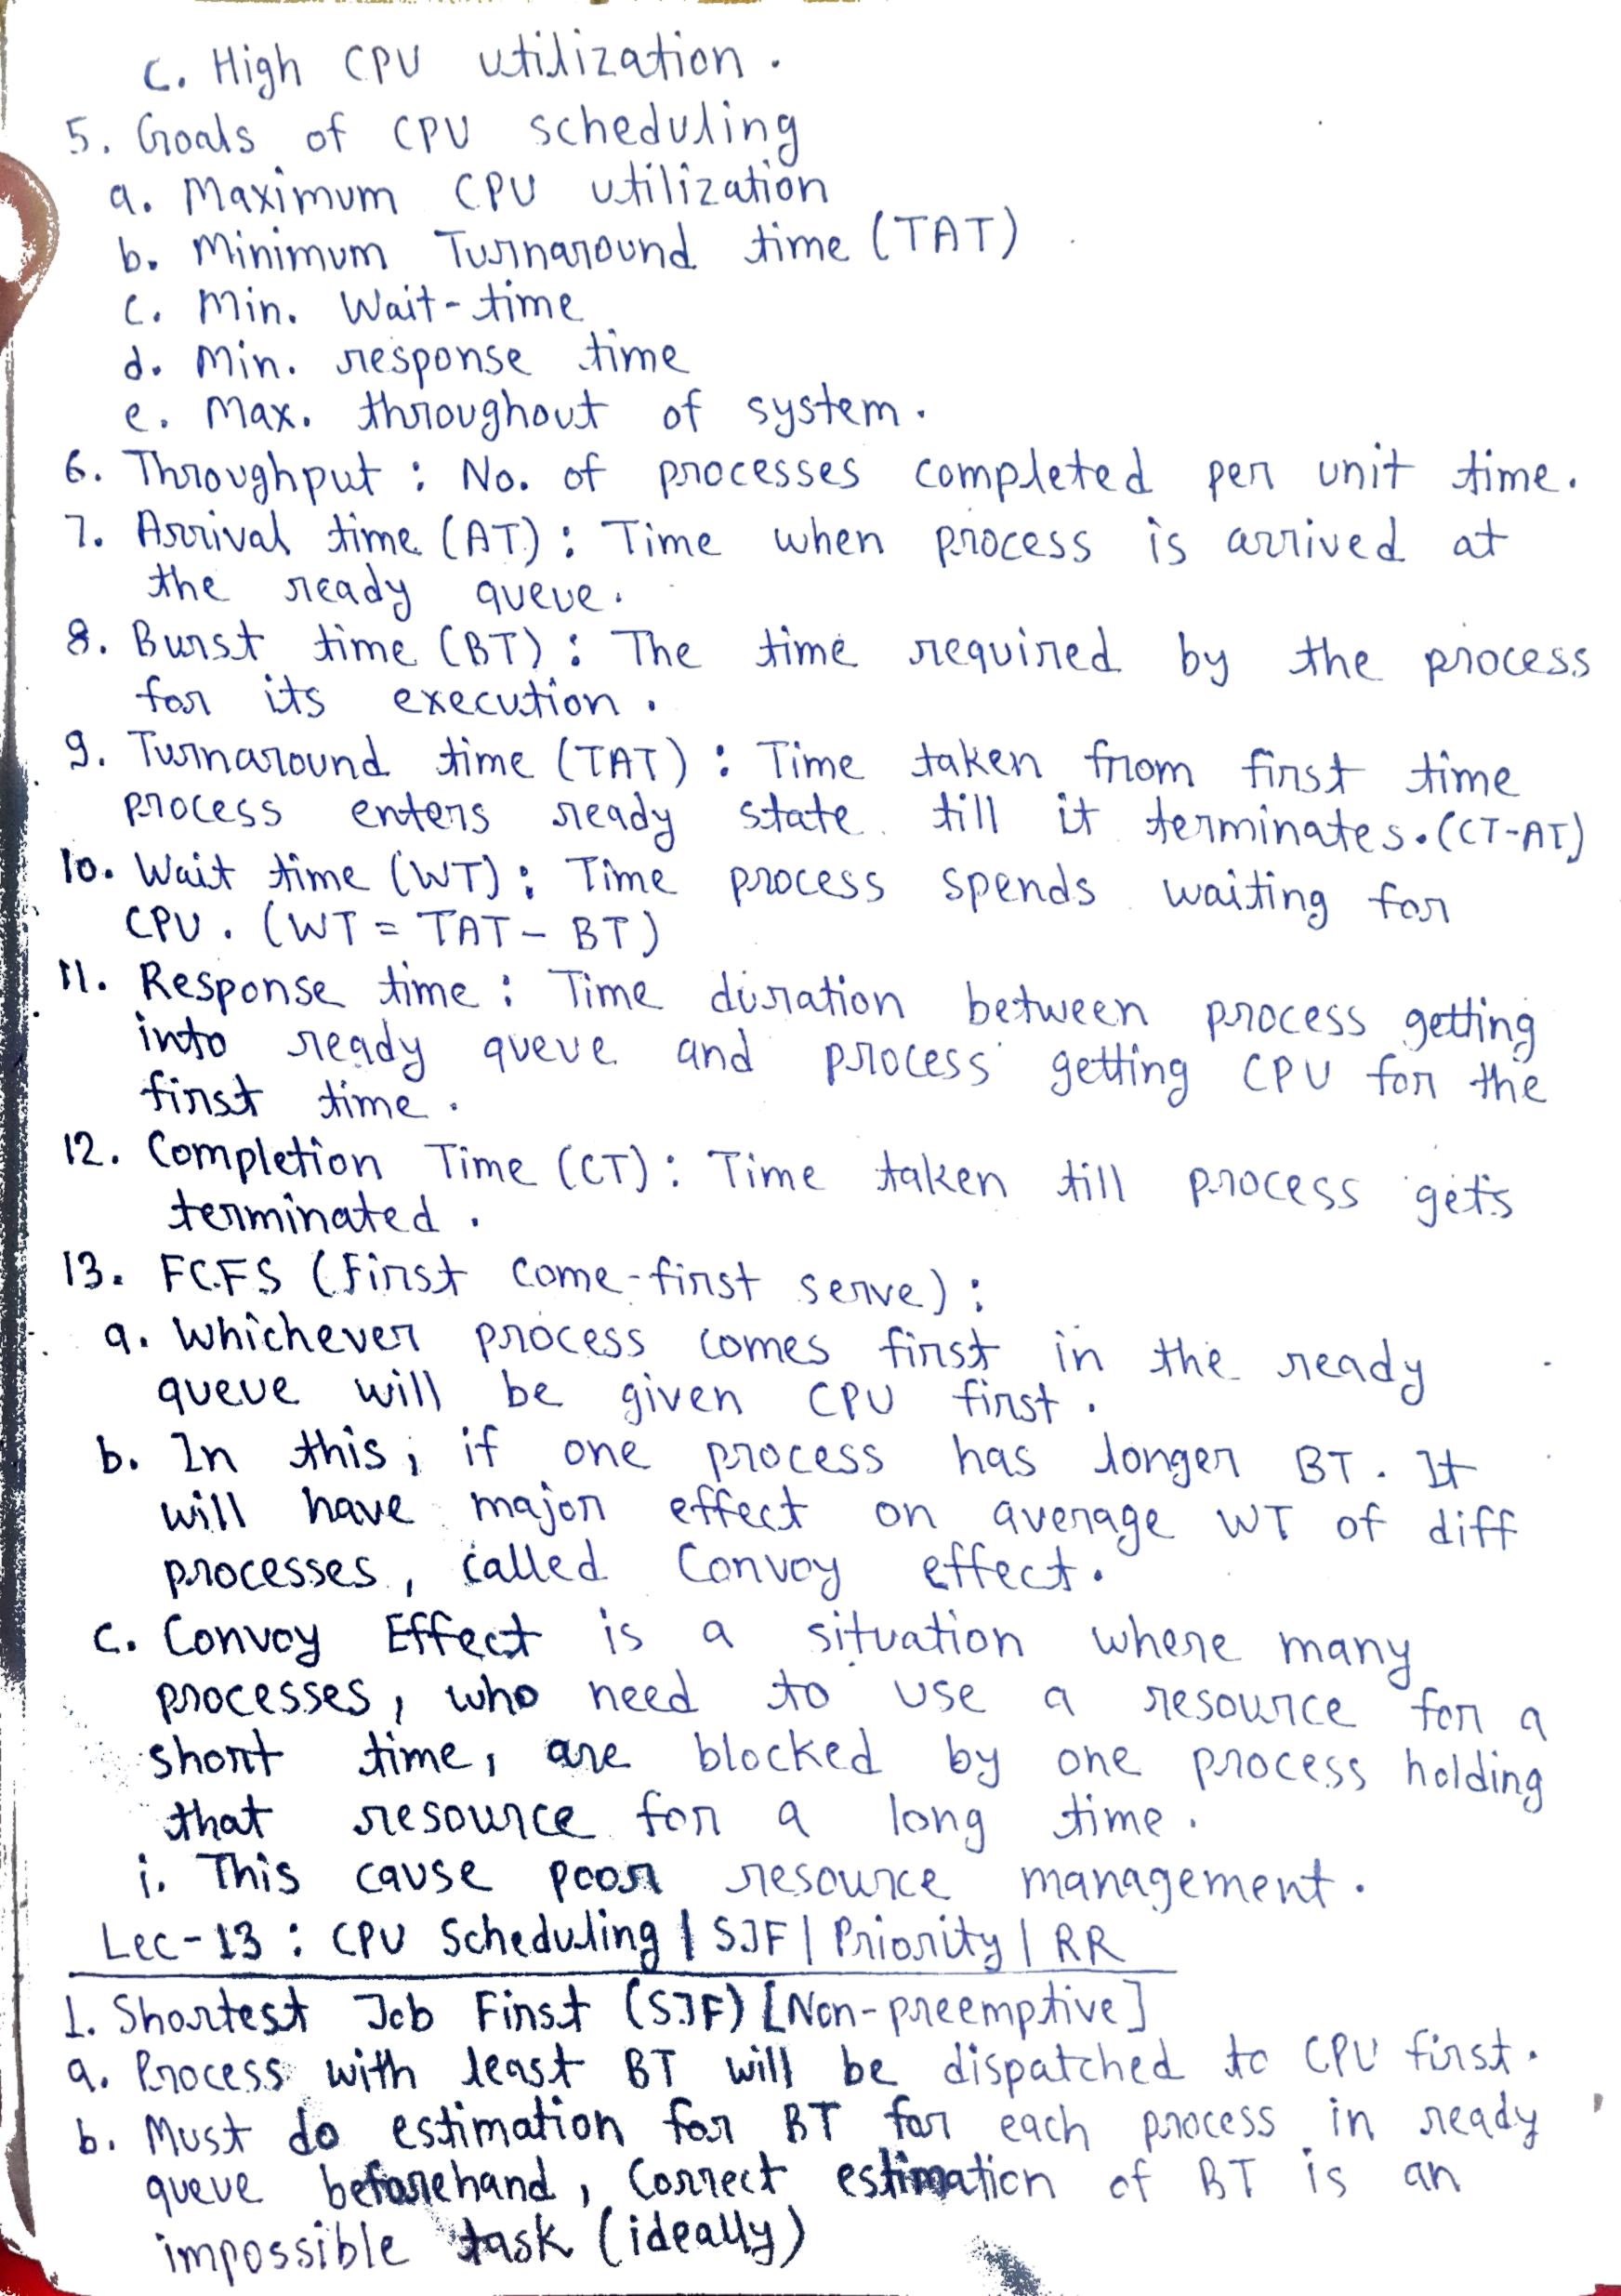 c. High CPU utilization.
5. Goals of CPU scheduling
a. Maximum CPU utilization
b. Minimum Turnaround time (TAT)
c. Min. Wait-time
d. Min. response time
e. Max. throughout of system.
6. Throughput : No. of processes completed per unit time.
7. Arrival time (AT) : Time when process is arrived at
the ready queue.
8. Burst time (BT) : The time required by the process
for its execution.
9. Turnaround time (TAT) : Time taken from first time
process enters ready state till it terminates. (CT-AT)
10. Wait time (WT) : Time process spends waiting for
CPU. (WT = TAT - BT)
11. Response time : Time duration between process getting
into ready queue and process getting CPU for the
first time.
12. Completion Time (CT) : Time taken till process gets
terminated.
13. FCFS (First come-first serve) :
a. Whichever process comes first in the ready
queue will be given CPU first.
b. In this, if one process has longer BT. It
will have major effect on average WT of diff
processes, called Convoy effect.
c. Convoy Effect is a situation where many
processes, who need to use a resource for a
short time, are blocked by one process holding
that resource for a long time.
i. This cause poor resource management.
Lec-13 : CPU Scheduling | SJF | Priority | RR
1. Shortest Job First (SJF) [Non-preemptive]
a. Process with least BT will be dispatched to CPU first.
b. Must do estimation for BT for each process in ready
queue beforehand, Correct estimation of BT is an
impossible task (ideally)